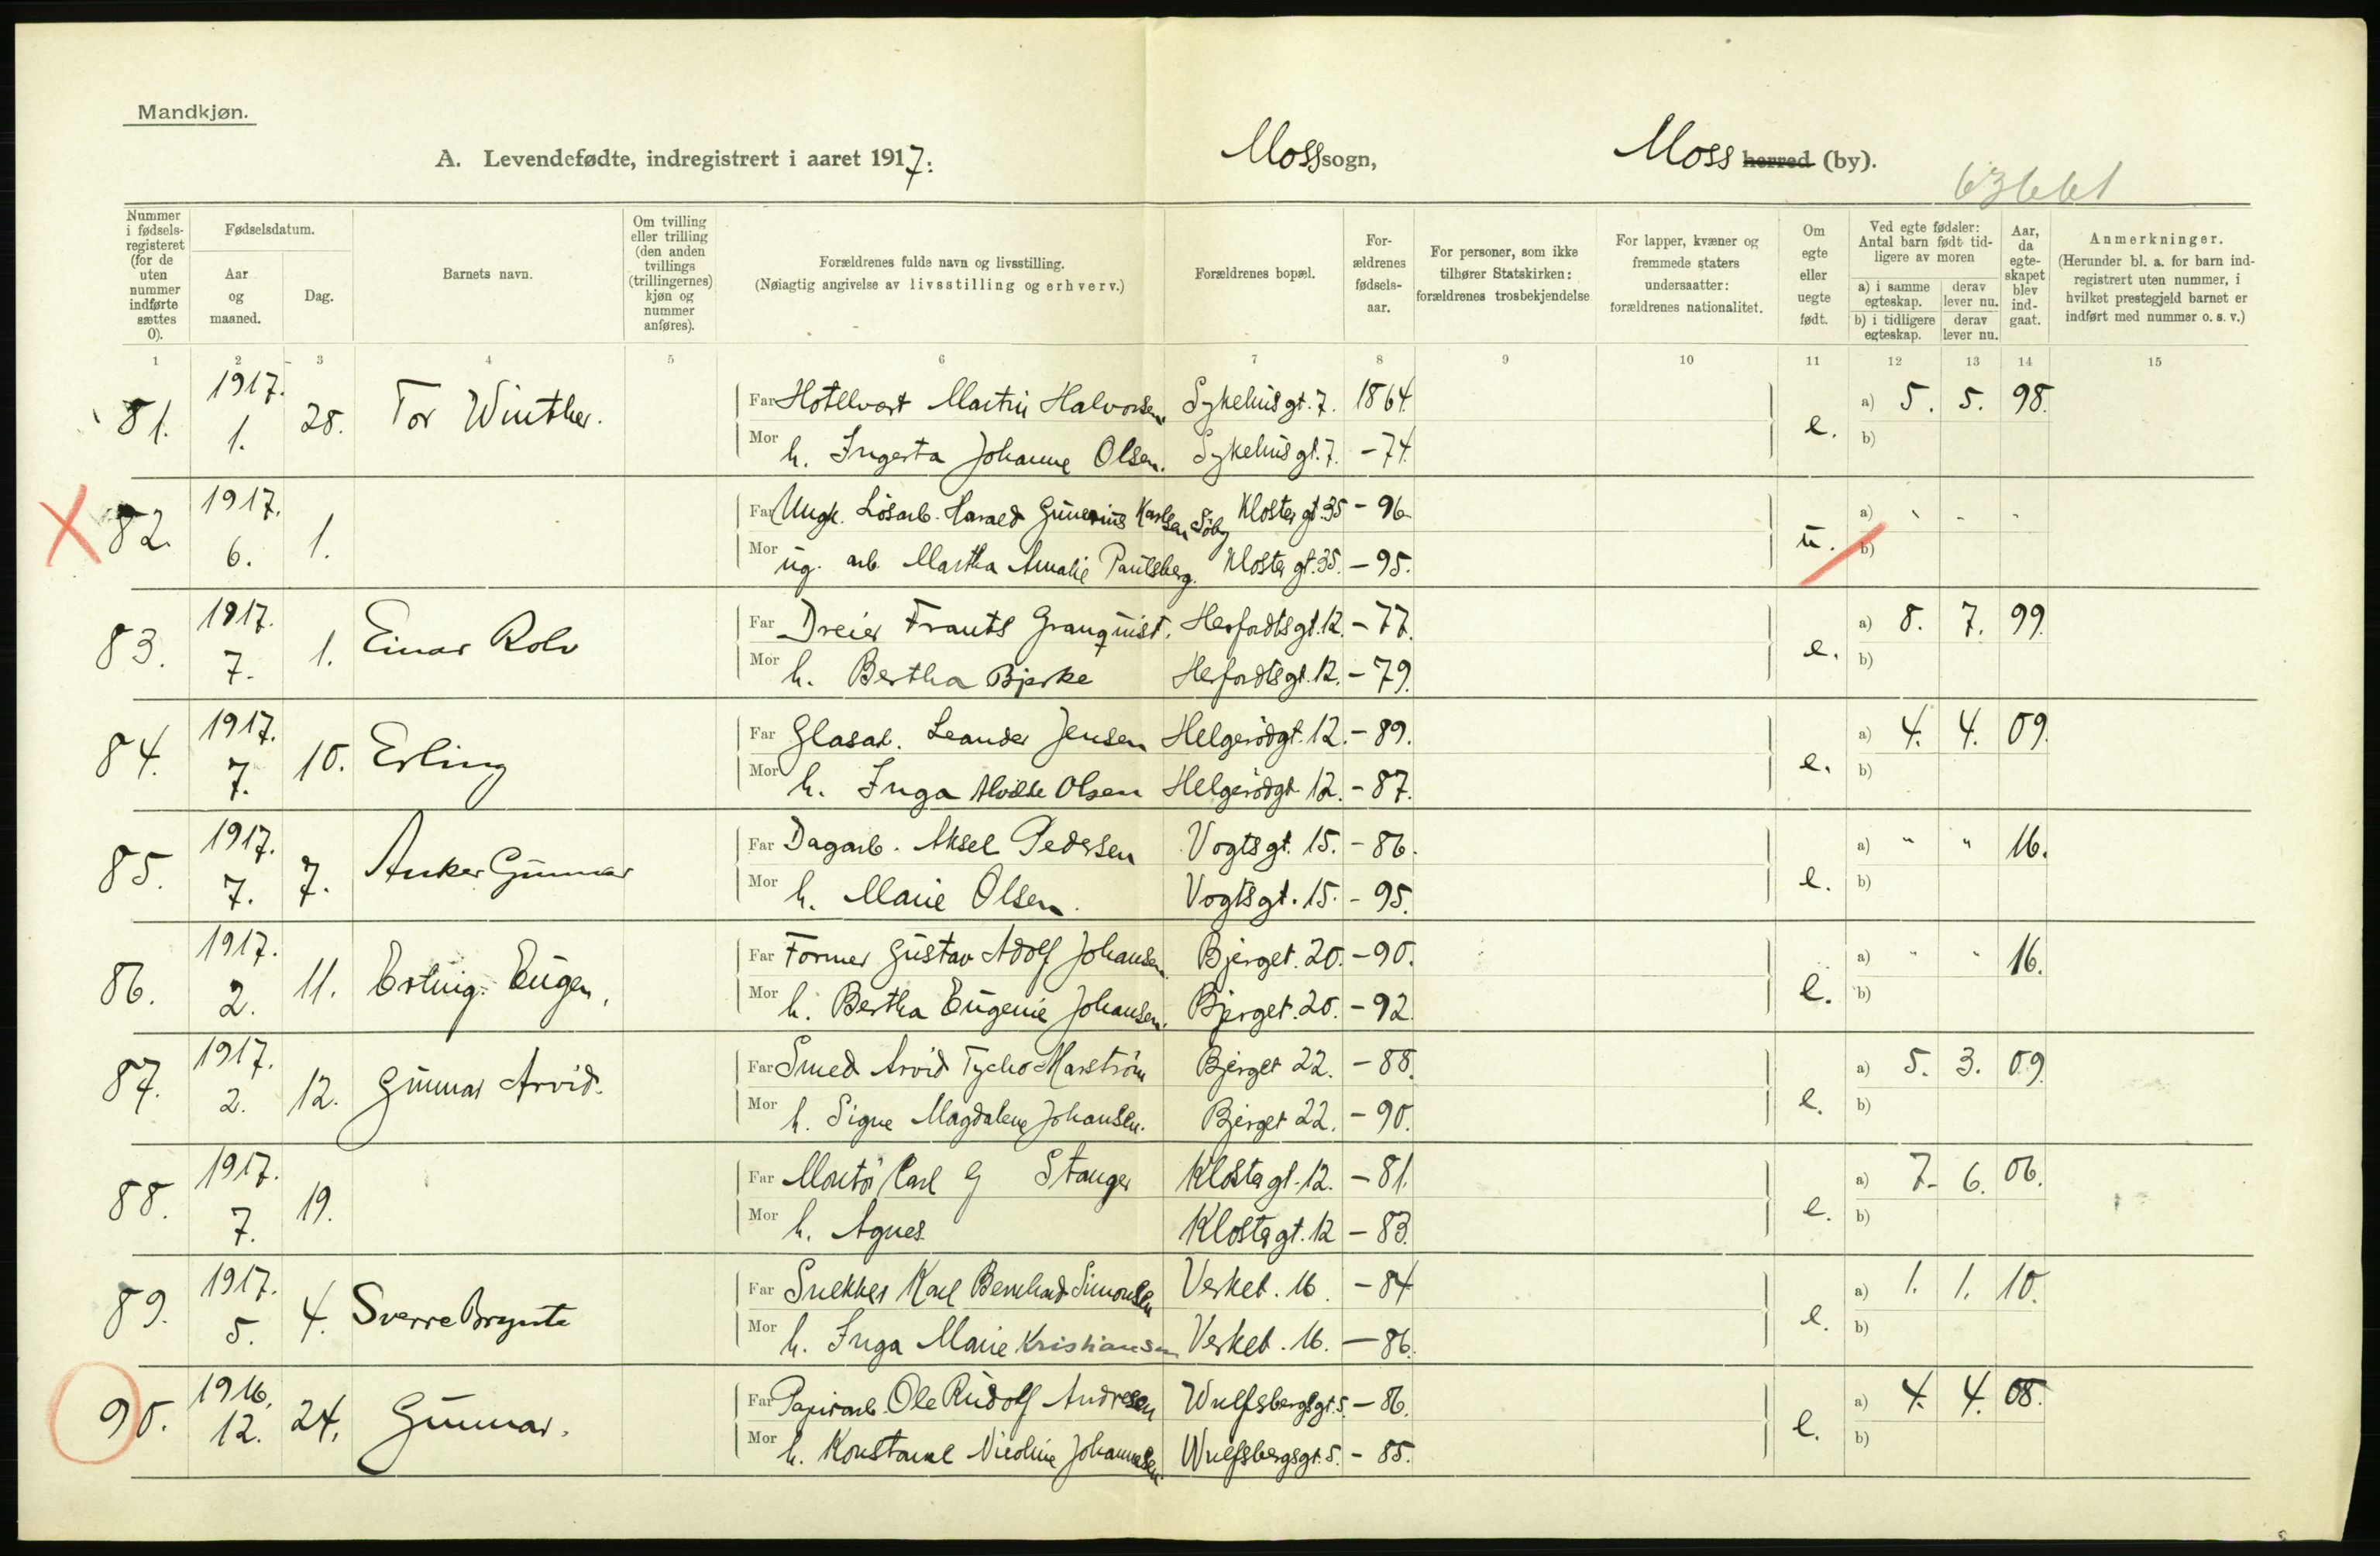 Mandkjøn.
A. Levendefødte, indregistrert i aaret 1917. Moss sogn, Moss herred (by).
63661
Nummer i fødselsregisteret (for de uten nummer indførte sættes 0).
Fødselsdatum.
Aar og maaned.
Dag.
Barnets navn.
Om tvilling eller trilling (den anden tvillings (trillingernes) kjøn og nummer anføres).
Forældrenes fulde navn og livsstilling.
(Nøiagtig angivelse av livsstilling og erhverv.)
Forældrenes bopæl.
Forældrenes fødselsaar.
For personer, som ikke tilhører Statskirken: forældrenes trosbekjendelse
For lapper, kvæner og fremmede staters undersaatter: forældrenes nationalitet.
Om egte eller uegte født.
Ved egte fødsler: Antal barn født tidligere av moren
a) i samme egteskap. derav lever nu.
b) i tidligere egteskap. derav lever nu.
Aar, da egteskapet blev indgaat.
Anmerkninger.
(Herunder bl. a. for barn indregistrert uten nummer, i hvilket prestegjeld barnet er indført med nummer o. s. v.)
1 2 3 4 5 6 7 8 9 10 11 12 13 14 15
81. 1917. 1. 28. Tor Winther. Far Hotelvert Martin Halvorsen Sykehusgt. 7. 1864. e. a) 5. 5. 98.
Mor h. Ingerta Johanne Olsen. Sykehusgt. 7. - 74. b)
X 82. 1917. 6. 1. Far Ungk. Løsarb. Harald Gunerius Karlsen Søby Klostergt. 35 - 96 u. a) " - -
Mor ug. arb. Martha Amalie Paulsberg. Klostergt. 35. - 95. b)
83. 1917. 7. 1. Einar Rolv Far Dreier Frants Granquist. Herfordtsgt. 12. - 77. e. a) 8. 7. 99.
Mor h. Bertha Bjerke Herfordtsgt. 12. - 79. b)
84. 1917. 7. 10. Erling Far Glasarb. Leander Jensen Helgerødgt. 12. - 89. e. a) 4. 4. 09.
Mor h. Inga Olsen Helgerødgt. 12. - 87. b)
85. 1917. 7. 7. Anker Gunnar Far Dagarb. Aksel Pedersen Vogtsgt. 15. - 86. e. a) " " 16.
Mor h. Marie Olsen. Vogtsgt. 15. - 95. b)
86. 1917. 2. 11. Eugen. Far Former Gustav Adolf Johansen Bjerget. 20. - 90. e. a) " " 16.
Mor h. Bertha Eugenie Johansen. Bjerget. 20. - 92. b)
87. 1917. 2. 12. Gunnar Arvid. Far Smed Arvid Tycho Marström Bjerget 22. - 88. e. a) 5. 3. 09.
Mor h. Signe Magdalene Johansen. Bjerget 22. - 90. b)
88. 1917. 7. 19. Far Montör Carl G Stanger Klostergt. 12. - 81. e. a) 7. 6. 06.
Mor h. Agnes Klostergt. 12 - 83. b)
89. 1917. 5. 4. Sverre Far Snekker Karl Bernhard Simonsen Verket. 16. - 84 e. a) 1. 1. 10.
Mor h. Inga Marie Kristiansen Verket. 16. - 86. b)
90. 1916. 12. 24. Gunnar. Far Papirarb. Ole Rudolf Andresen Wulfsbergsgt. 5. - 86. e. a) 4. 4. 08.
Mor h. Konstanse Nicoline Johannesen Wulfsbergsgt. 5. - 85. b)